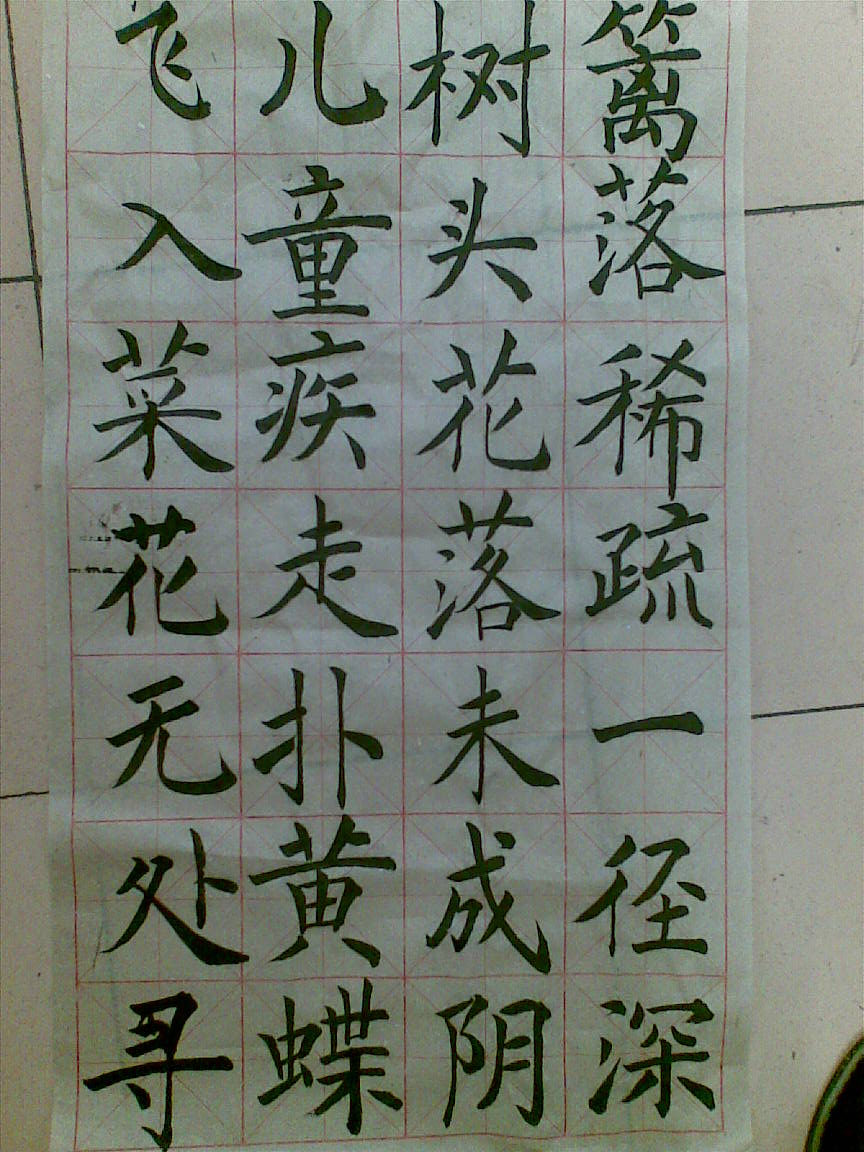 篱落稀疏一径深
树头花落未成阴
儿童疾走扑黄蝶
飞入菜花无处寻